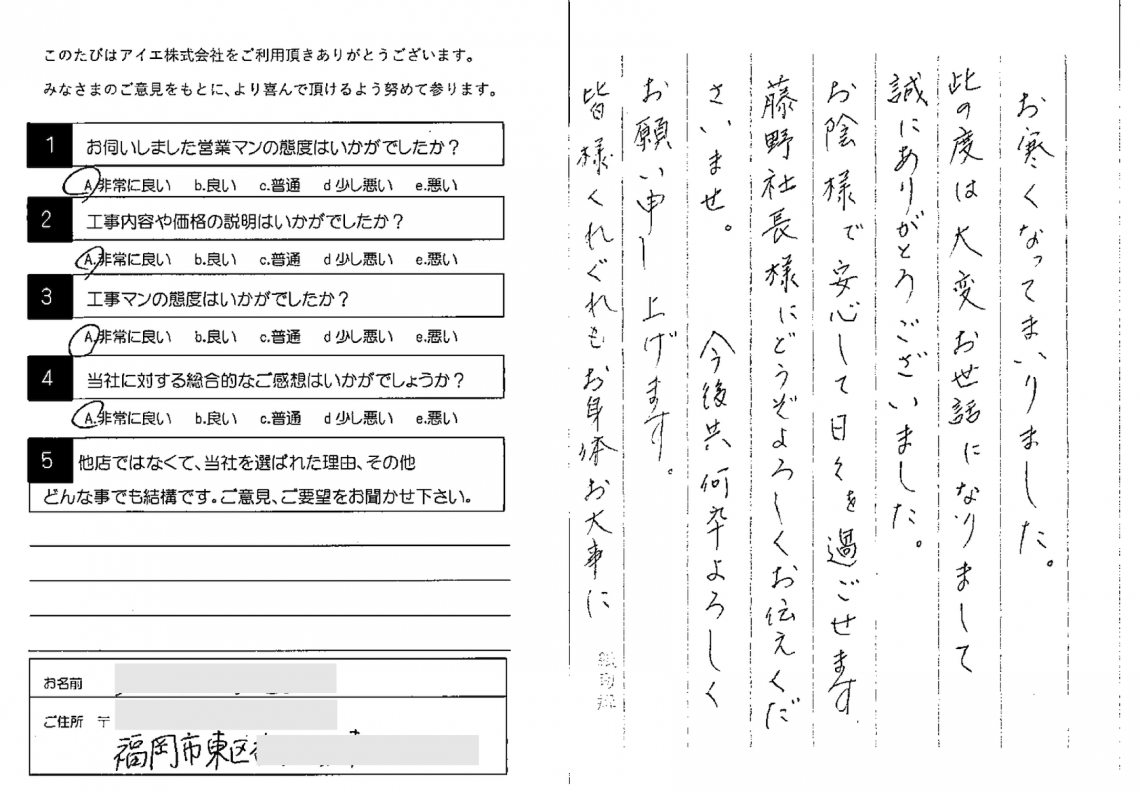 このたびはアイエ株式会社をご利用頂きありがとうございます。
みなさまのご意見をもとに、より喜んで頂けるよう努めて参ります。
1 お伺いしました営業マンの態度はいかがでしたか?
A.非常に良い b.良い c.普通 d 少し悪い e.悪い
2 工事内容や価格の説明はいかがでしたか?
A.非常に良い b.良い c.普通 d 少し悪い e.悪い
3 工事マンの態度はいかがでしたか?
A.非常に良い b.良い c.普通 d 少し悪い e.悪い
4 当社に対する総合的なご感想はいかがでしょうか?
A.非常に良い b.良い c.普通 d 少し悪い e.悪い
5 他店ではなくて、当社を選ばれた理由、その他
どんな事でも結構です。ご意見、ご要望をお聞かせ下さい。
お名前
ご住所 〒
福岡市東区
お寒くなってまいりました。
此の度は大変お世話になりまして
誠にありがとうございました。
お陰様で安心して日々を過ごせます。
藤野社長様にどうぞよろしくお伝えくだ
さいませ。 今後共何卒よろしく
お願い申し上げます。
皆様くれぐれもお身体お大事に